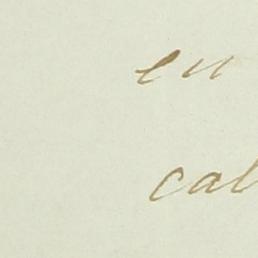 en
cal